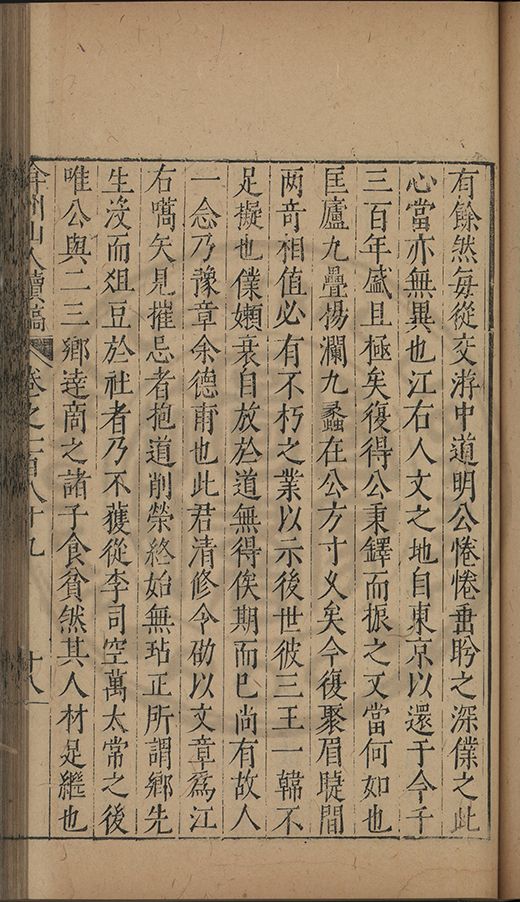 有餘然每從交游中道明公惓惓垂盻之深僕之此
心當亦無異也江右人文之地自東京以還于今千
三百年盛且極矣復得公秉鐸而振之又當何如也
匡廬九疊揚瀾九蠡在公方寸乆矣今復聚眉睫間
两奇相值必有不朽之業以示後世彼三王一韓不
足擬也僕嬾衰自放於道無得俟期而已尚有故人
一念乃豫章余德甫也此君清修令劭以文章爲江
右嚆矢見摧忌者抱道削榮終始無玷正所謂鄉先
生沒而俎豆於社者乃不獲從李司空萬太常之後
唯公與二三鄉逹商之諸子食貧然其人材足繼也
弇州山人續稿 卷之一百八十九 十八